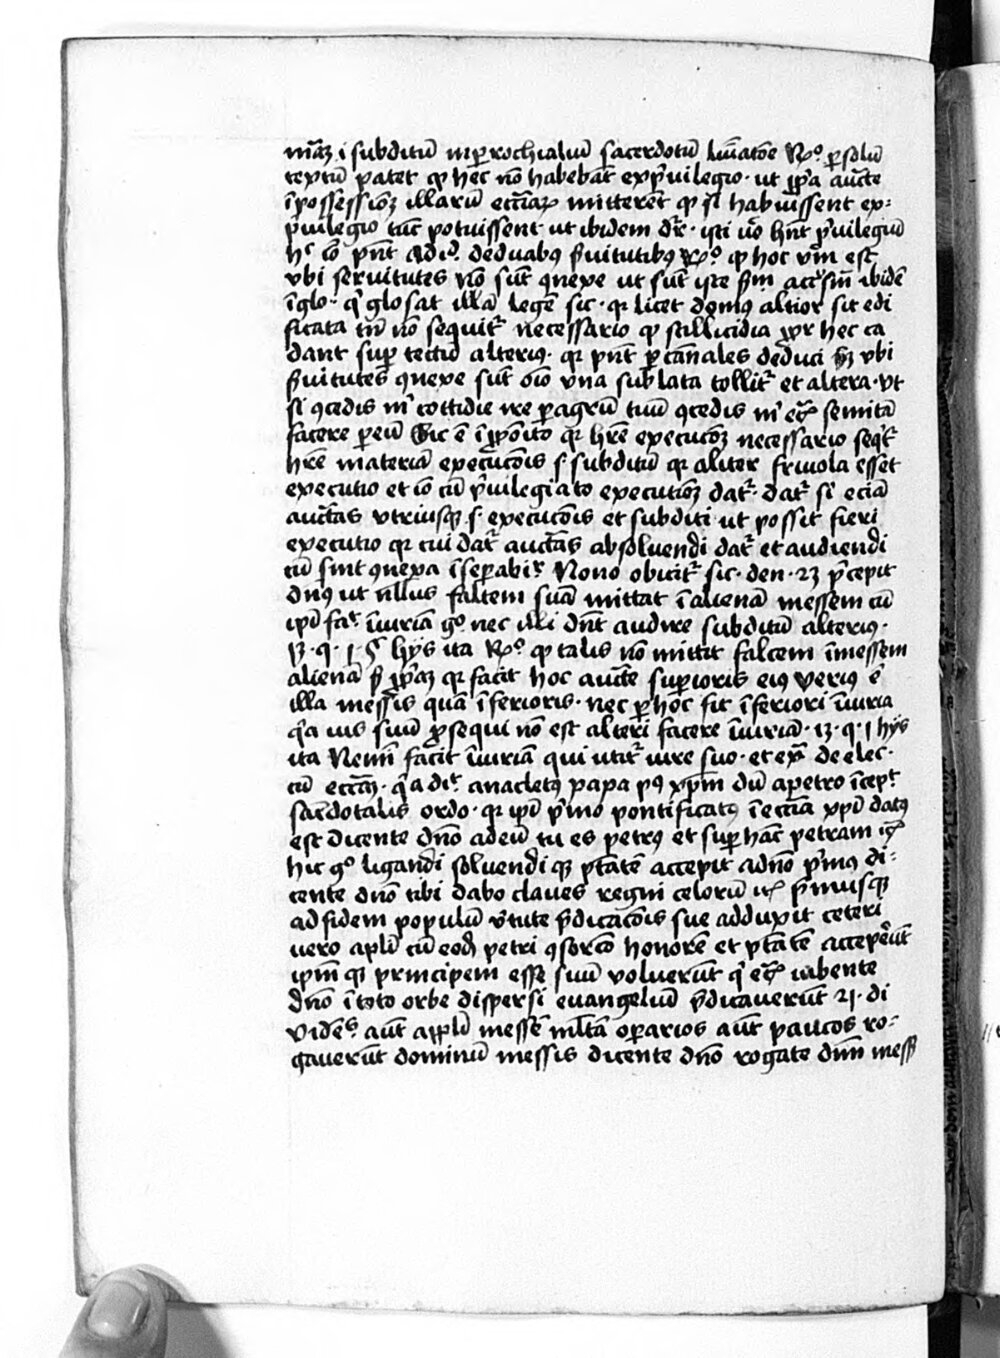 mãz i subditũ in ꝑrochialiũ sacerdotũ liuiatõe Rº ꝑ solũ
textũ patet ꝙ hec nõ habebãt ex pͥuilegio · ut ip̃a aucte
ĩ possessiõz illarũ eccĩaꝝ mitterẽt ꝙ si habuissent ex-
pͥuilegio tũc potuissent ut ibidem dr̃ · isti ũo hñt pͥuilegiũ
hͦ iõ pñt de duabus s̃uitutibus Rº ꝙ hoc veꝝ est
vbi seruitutes nõ sũt ꝯnexe ut sũt iste s̃m ibidẽ
ĩ glo · qͥ glosat illã legẽ sic · qꝛ licet domus altior sit edi
ficata tñ nõ sequitͬ necessario ꝙ stillicidia ꝓpt̃ hec ca
dant suꝑ tectũ alterius · qꝛ pñt ꝑ cãnales deduci sꝫ vbi
s̃uitutes ꝯnexe sũt oĩo vna sublata tollitͬ et altera · vt
si ꝯcedis mͥ cottidie ire ꝑ agrũ tuũ ꝯcedis mͥ etꝭ semitã
facere ꝑ eũ Sic ẽ ĩ ꝓpoĩto qꝛ hr̃e execucõz necessario seqͥtͬ
hr̃e materiã execucõis s · subditũ qꝛ aliter friuola esset
executio et iõ cũ pͥuilegiato executiõz datͬ · datͬ si eciã
auctãs vtriusqꝫ s · execucõis et subditi · ut possit fieri
executio qꝛ cui datͬ auctãs absoluendi datͬ et audiendi
cũ sint ꝯnexa ĩseꝑabiͬ Nono obicitͬ sic · den · 23 p̃cepit
dñus ut nllus faltem suã mittat ĩ alienã messem cũ
ipͥ̃ faͬ ĩiuriã gº nec illi dñt audire subditũ alterius ·
13 · q · 1 · § hijs ita Rº ꝙ talis nõ mittit falcem ĩ messem
alienã s̃ ꝓp̃az qꝛ facit hoc aucte suꝑioris eius verius ẽ
illa messis quã ĩferioris · nec ꝑ hõc fit ĩferiori ĩiuria
qͣa ius suũ ꝓsequi nõ est alteri facere ĩiuriã · 13 · q · 1 hijs
ita Nemĩ facit ĩiuriã qui utitͬ iure suo · et ex̃ de elec ·
cũ eccĩaꝝ · qͣa diͭ anacletus papa pͥus xp̃m dũ a petro ĩcepͭ
sac̃dotalis ordo · qꝛ ipͥ̃ pͥmo pontificatus ĩ eccĩa xp̃i datus
est dicente dño ad eũ tu es petrus et suꝑ hãc petram ⁊c̃
hic gº ligandi soluendi qꝫ ptãtẽ accepit a dño pͥmus di-
cente dño tibi dabo claues regni celorũ ⁊c̃ pͥmusqꝫ
ad fidem populũ v̾tute p̃dicacõis sue adduxit ceteri
vero apl̃i cũ eodẽ petri ꝯsorcõ honorẽ et ptãtẽ accepẽrũt
ipm̃ qꝫ principem esse suũ voluerũt qͥ etꝭ iubente
dño ĩ toto orbe dispersi euangeliũ p̃dicauerũt 21 · di
videñs aũt apl̃i messẽ ml̃tã oꝑarios aũt paucos ro-
gauerũt dominũ messis dicente dño rogate dñm mess̃